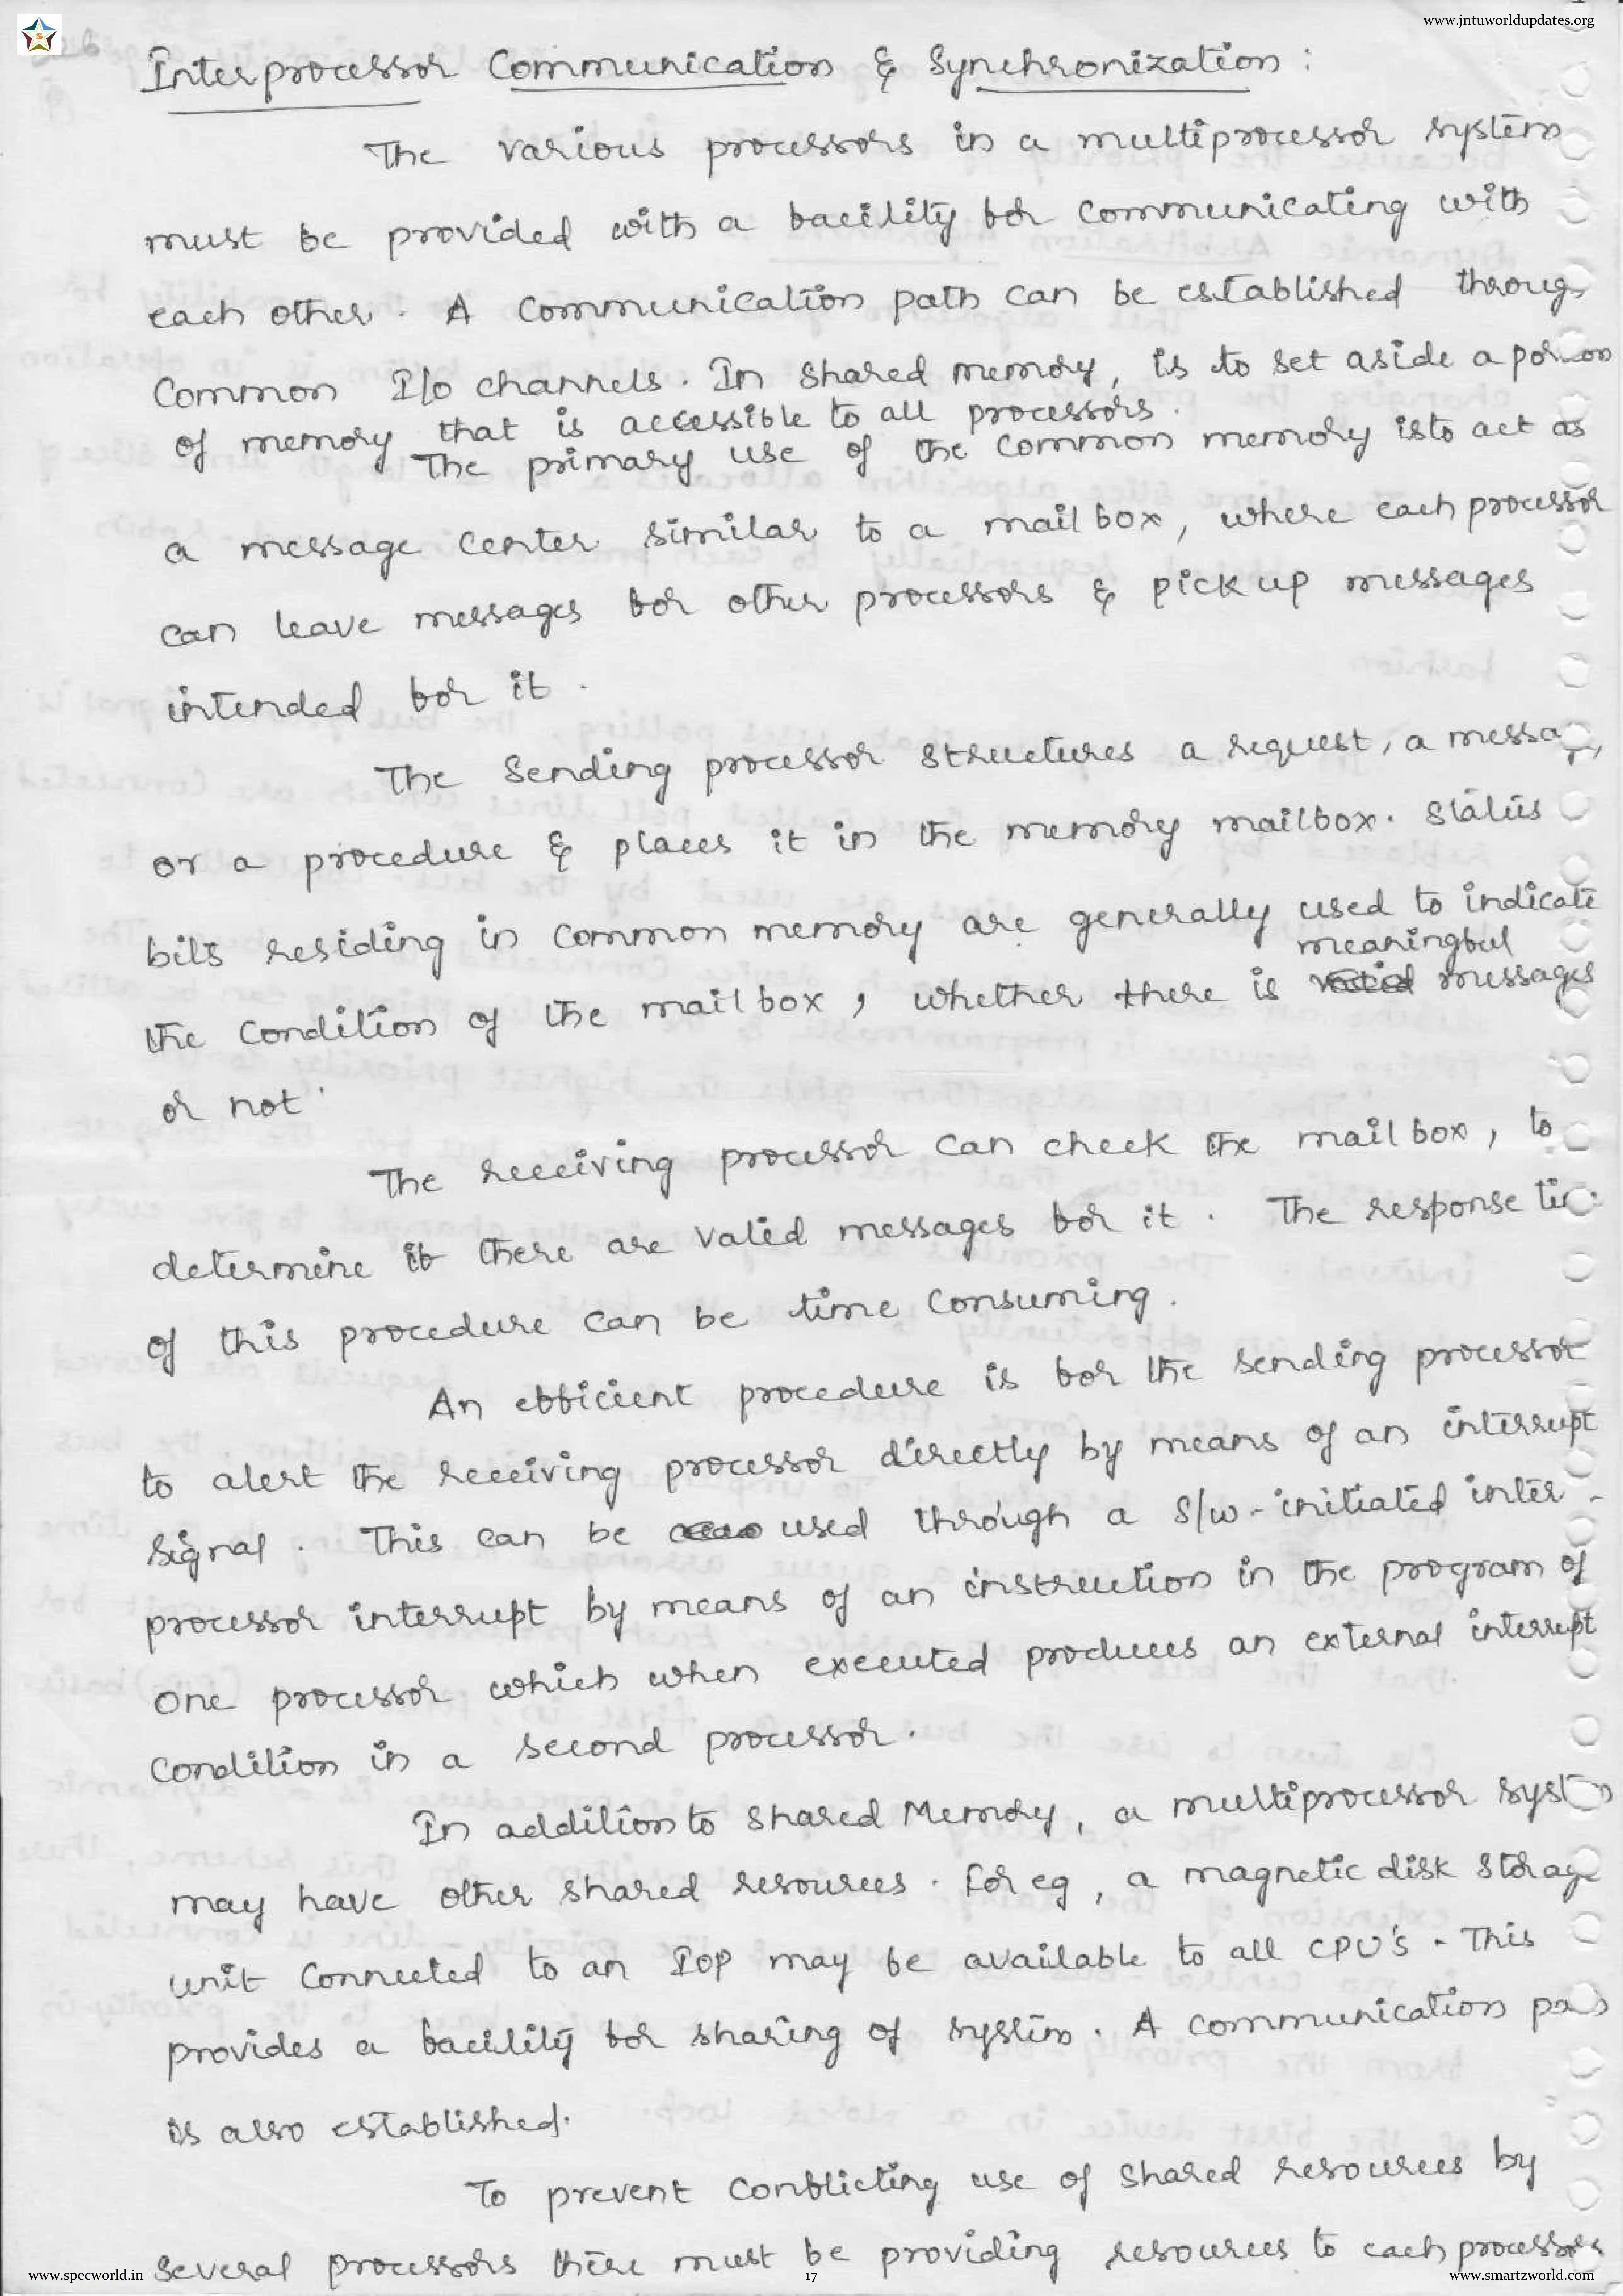 www.jntuworldupdates.org
S
Interprocessor Communication & Synchronization :
The various processors in a multiprocessor system
must be provided with a facility for communicating with
each other. A communication path can be established throug
Common I/o channels. In shared memory, is to set aside a portion
of memory that is accessible to all processors.
The primary use of the common memory is to act as
a message center similar to a mail box, where each processor
can leave messages for other processors & pick up messages
intended for it.
The Sending processor structures a request, a messag,
or a procedure & places it in the memory mailbox. Status
bits residing in common memory are generally used to indicate
meaningful
the condition of the mail box, whether there is messages
or not.
The receiving processor can check the mail box, to
determine if there are valid messages for it. The response tim
of this procedure can be time consuming.
An efficient procedure is for the sending processor
to alert the receiving processor directly by means of an interrupt
signal. This can be used through a S/w-initiated inter-
processor interrupt by means of an instruction in the program of
one processor which when executed produces an external interrupt
condition in a second processor.
In addition to shared Memory, a multiprocessor system
may have other shared resources. For eg, a magnetic disk storage
unit connected to an IOP may be available to all CPU's. This
provides a facility for sharing of system. A communication
is also established.
To prevent conflicting use of shared resources by
several processors there must be providing resources to each processors
www.specworld.in
17
www.smartzworld.com